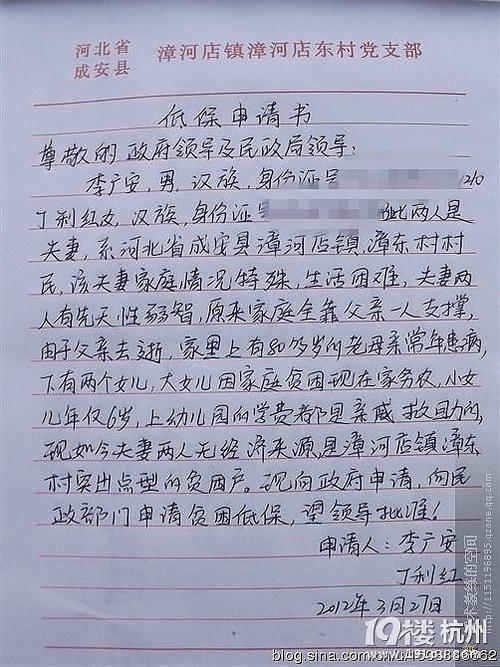 河北省
成安县
漳河店镇漳河店东村党支部
低保申请书
尊敬的政府领导及民政局领导：
李广安，男，汉族，身份证号
丁利红女，汉族，身份证号 此两人是
夫妻，系河北省成安县漳河店镇，漳东村村
民，该夫妻家庭情况特殊，生活困难，夫妻两
人有先天性弱智，原来家庭全靠父亲一人支撑，
由于父亲去逝，家里上有80多岁的老母亲常年患病，
下有两个女儿，大女儿因家庭贫困现在家务农，小女
儿年仅6岁，上幼儿园的学费都是亲戚救助的，
现如今夫妻两人无经济来源，是漳河店镇漳东
村突出点型的贫困户。现向政府申请，向民
政部门申请贫困低保，望领导批准！
申请人：李广安
丁利红
2012年3月27日
术教练的空间
http://1151196895.qzone.qq.com
19楼 杭州
www.19lou.com